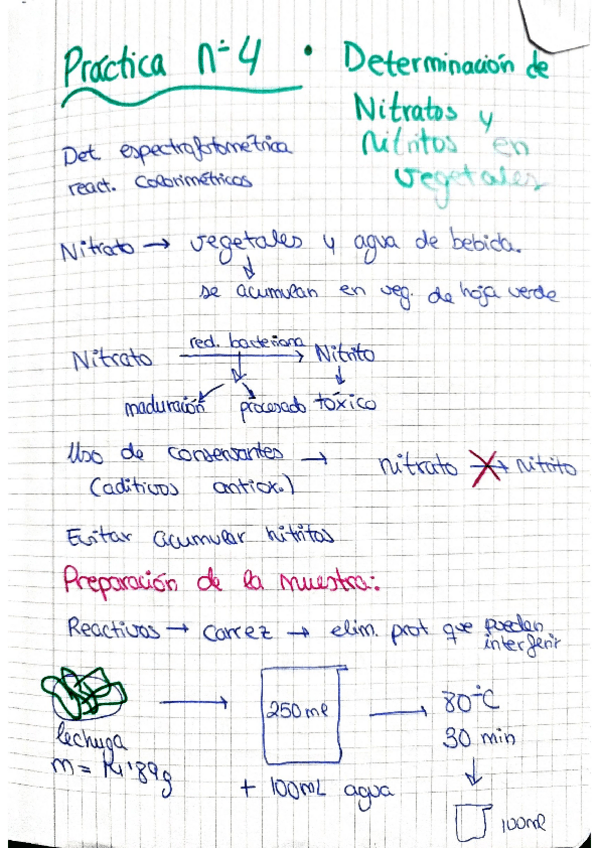 Práctica nº 4 • Determinación de
Nitratos y
Nitritos en
vegetales
Det. espectrofotométrica
react. Colorimétricos
Nitrato → vegetales y agua de bebida.
↓
se acumulan en veg. de hoja verde
Nitrato red. bacteriana → Nitrito
maduración procesado tóxico
Uso de conservantes → nitrato → nitrito
(aditivos antiox.)
Evitar acumular nitritos
Preparación de la muestra:
Reactivos → Carrez → elim. prot que pueden
interferir
250 ml → 80°C
lechuga 30 min
+ 100mL agua
100ml